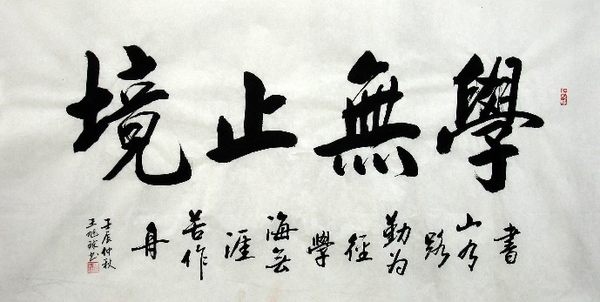 學無止境
書山有路勤为徑學海無涯苦作舟
壬辰仲秋
王旭